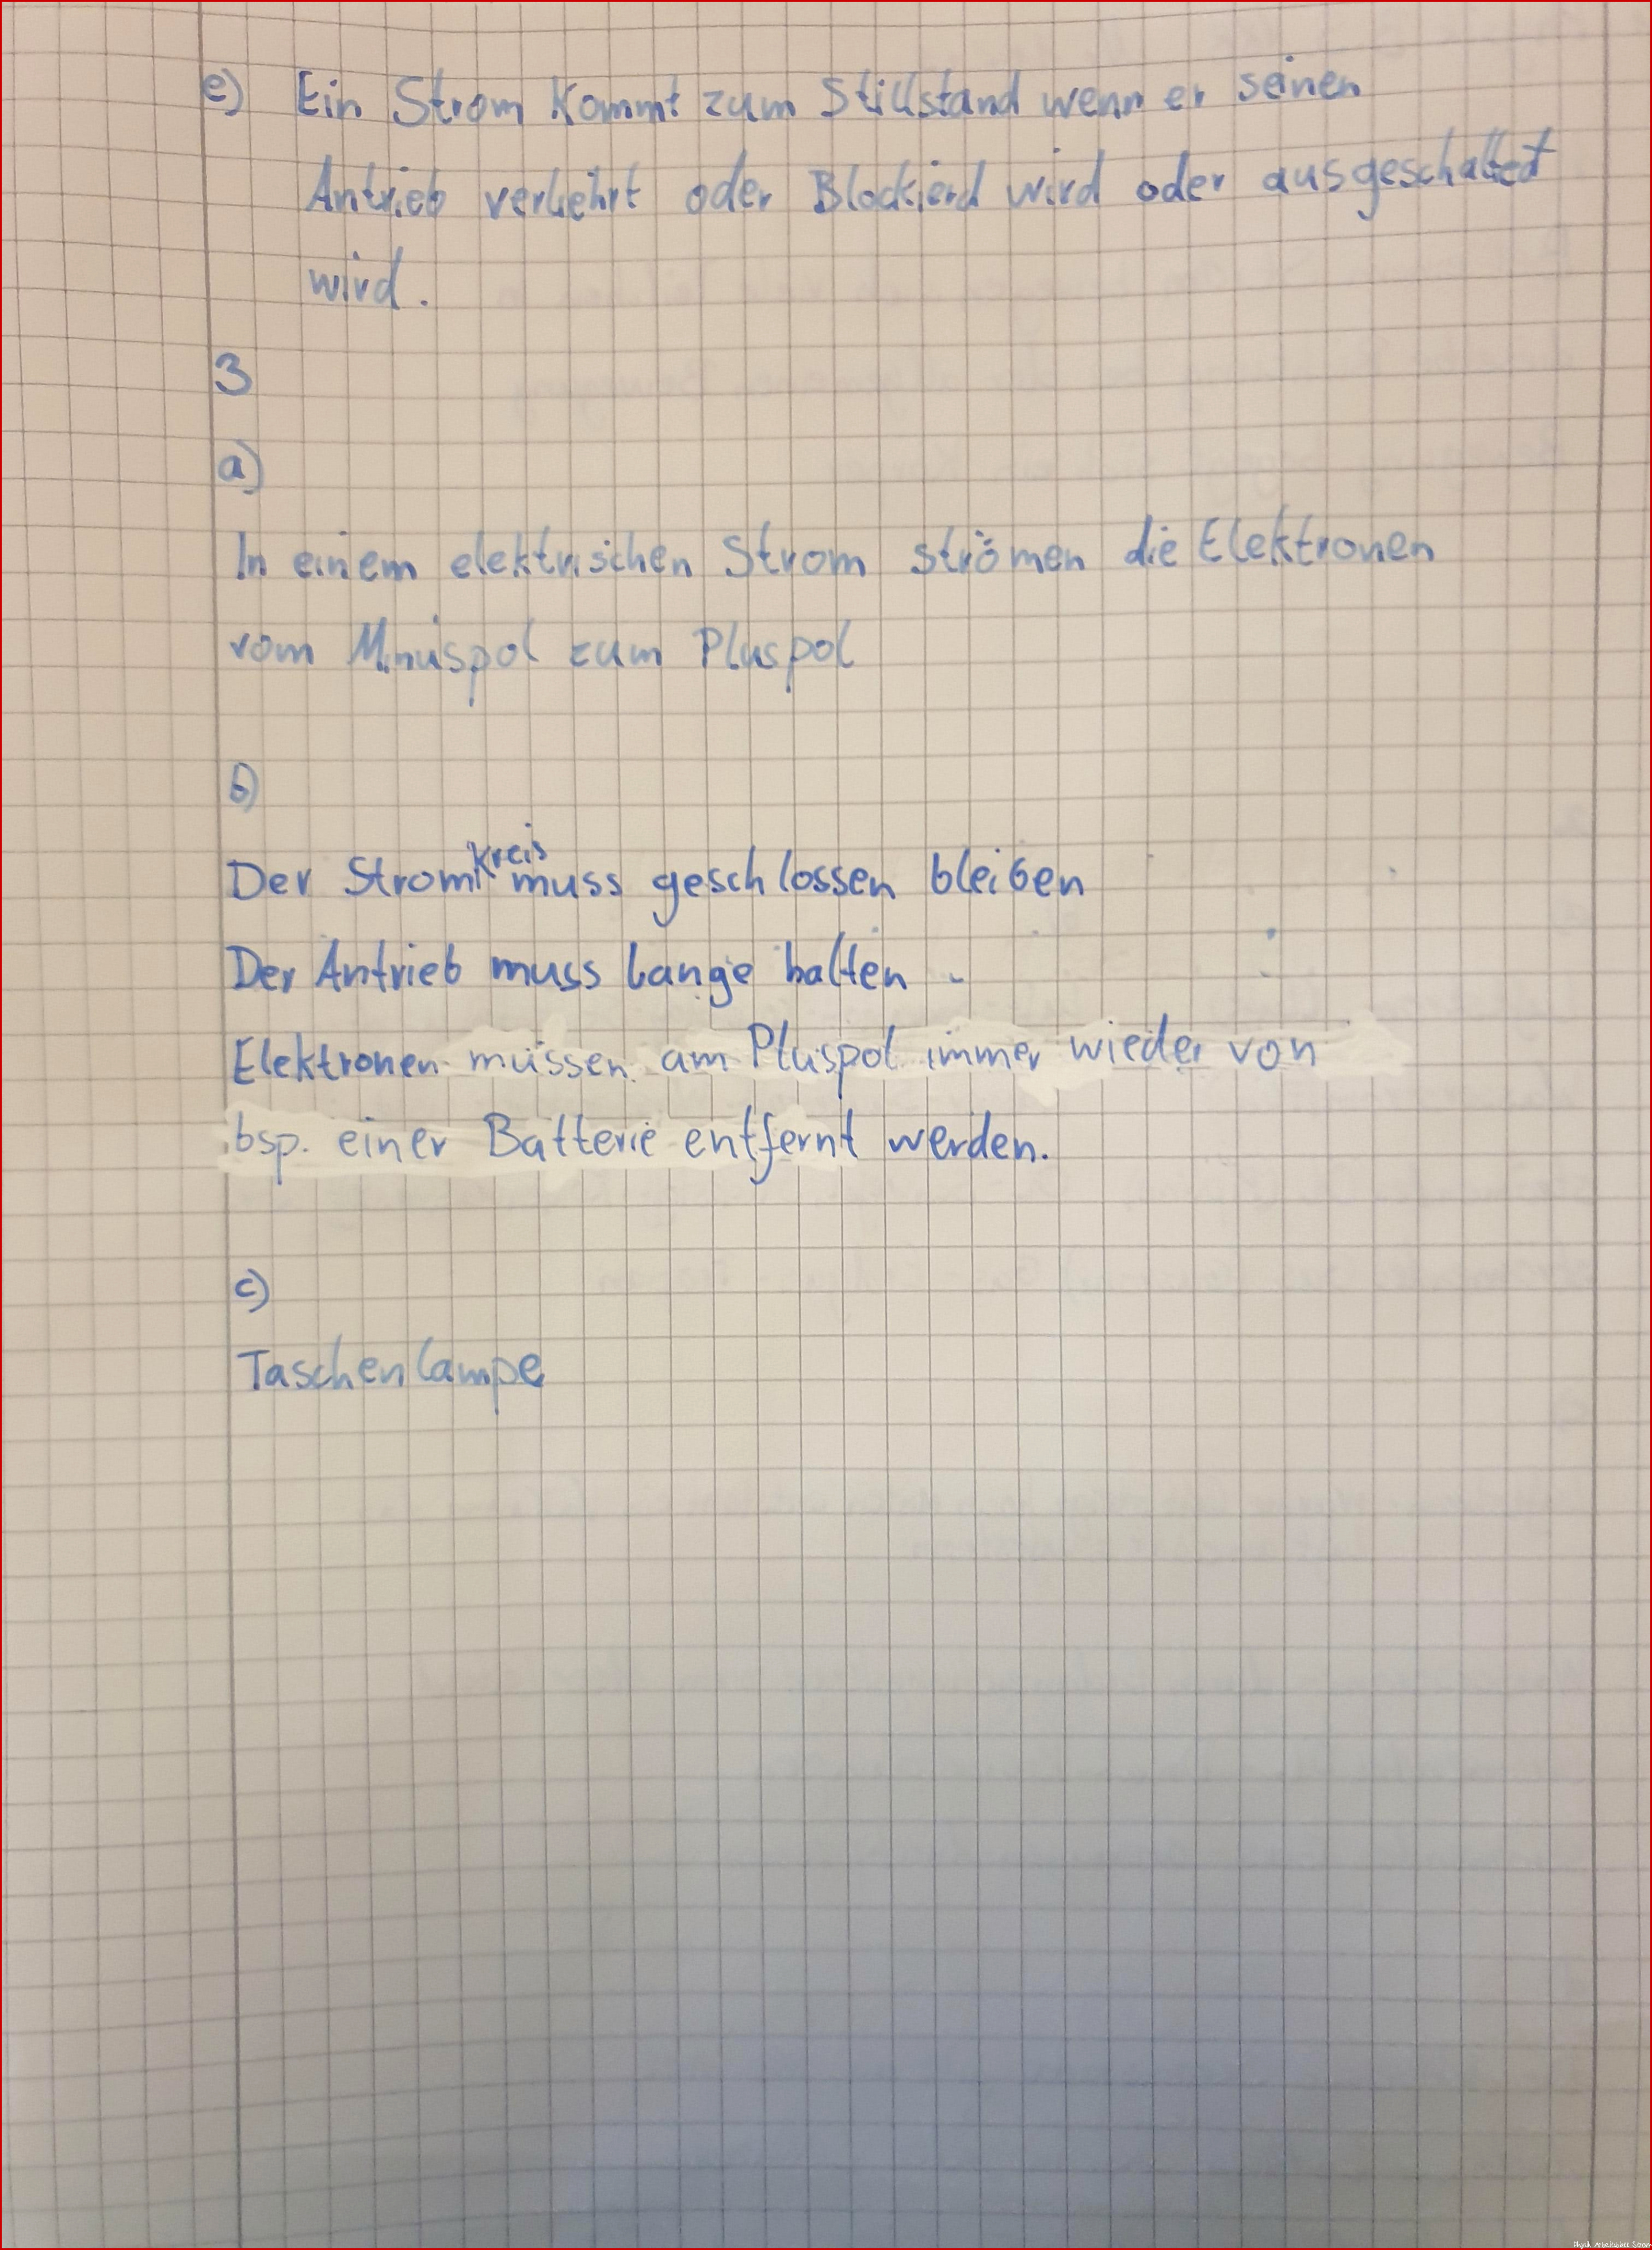 e) Ein Strom kommt zum Stillstand wenn er seinen
Antrieb verliehrt oder Blockierd wird oder ausgeschalted
wird.
3
a)
In einem elektrischen Strom strömen die Elektronen
vom Minuspol zum Pluspol
b)
Der Stromkreis muss geschlossen bleiben
Der Antrieb muss lange halten
Elektronen müssen am Pluspol immer wieder von
bsp. einer Batterie entfernt werden.
c)
Taschenlampe